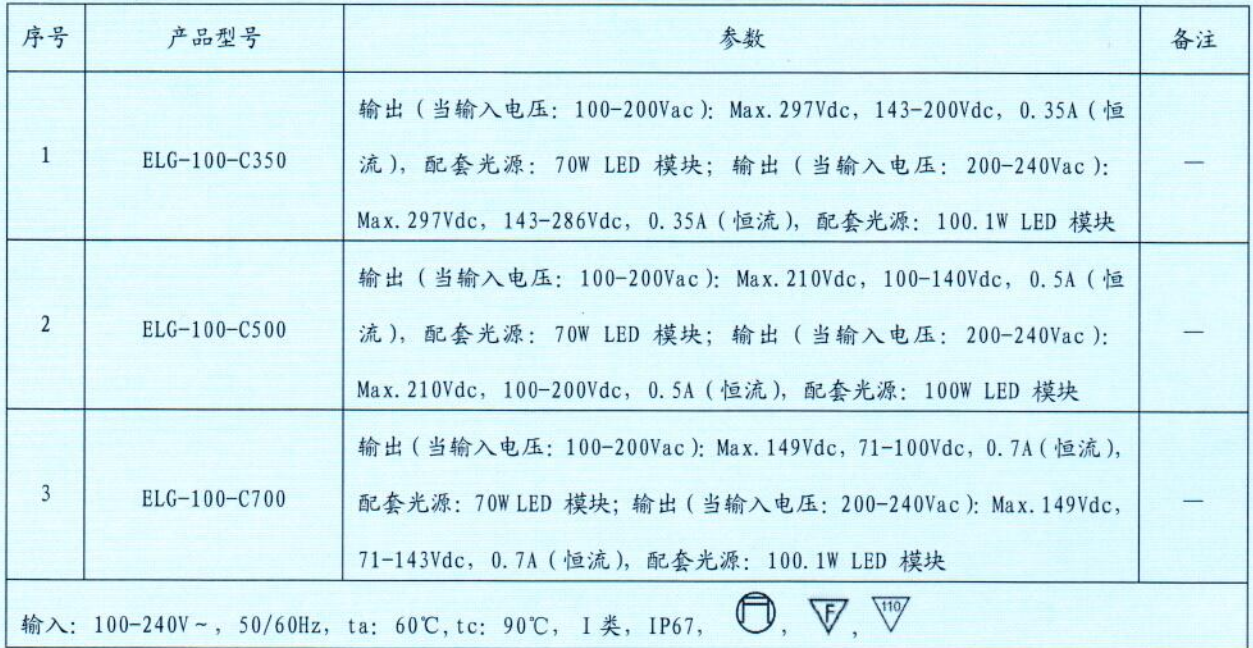 序号 产品型号 参数 备注
1 ELG-100-C350 输出（当输入电压：100-200Vac）：Max.297Vdc，143-200Vdc，0.35A（恒
流），配套光源：70W LED 模块；输出（当输入电压：200-240Vac）：
Max.297Vdc，143-286Vdc，0.35A（恒流），配套光源：100.1W LED 模块 —
2 ELG-100-C500 输出（当输入电压：100-200Vac）：Max.210Vdc，100-140Vdc，0.5A（恒
流），配套光源：70W LED 模块；输出（当输入电压：200-240Vac）：
Max.210Vdc，100-200Vdc，0.5A（恒流），配套光源：100W LED 模块 —
3 ELG-100-C700 输出（当输入电压：100-200Vac）：Max.149Vdc，71-100Vdc，0.7A（恒流），
配套光源：70W LED 模块；输出（当输入电压：200-240Vac）：Max.149Vdc，
71-143Vdc，0.7A（恒流），配套光源：100.1W LED 模块 —
输入：100-240V~，50/60Hz，ta：60℃,tc：90℃，I类，IP67， ，F，110